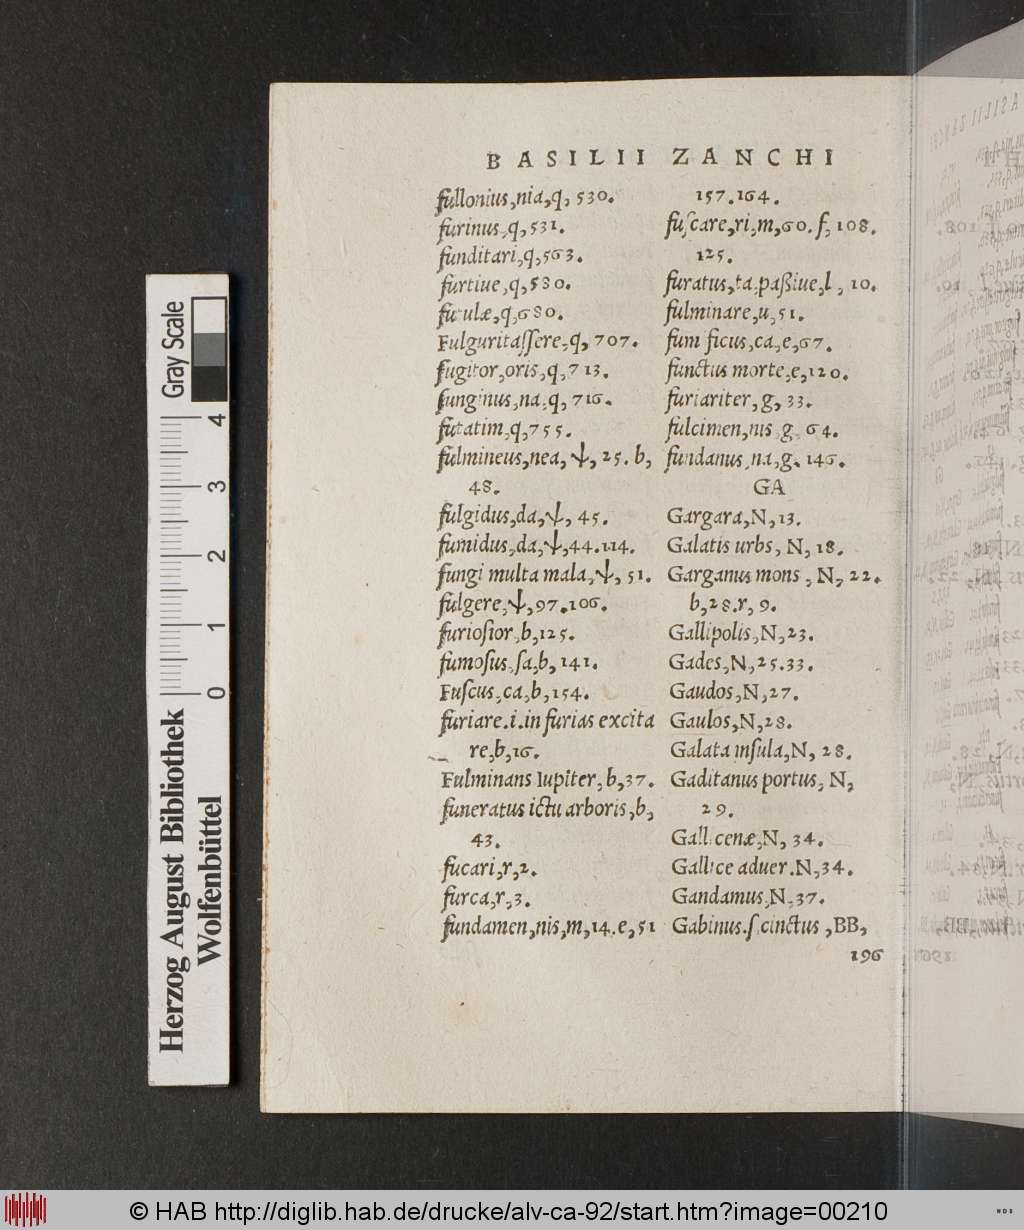 BASILII ZANCHI
fullonius,nia,q, 530.
furinus,q,531.
funditari,q,563.
furtiue,q,580.
futulæ,q,680.
Fulguritaſſere,q, 707.
fugitor,oris,q,713.
funginus,na,q, 716.
futatim,q,755.
fulmineus,nea, ψ, 25. b,
48.
fulgidus,da,ψ, 45.
fumidus,da,ψ,44.114.
fungi multa mala,ψ, 51.
fulgere,ψ,97.106.
furioſior,b,125.
fumoſus,ſa,b, 141.
Fuſcus,ca,b,154.
furiare.i.in furias excita
re,b,16.
Fulminans Iupiter,b,37.
funeratus ictu arboris,b,
43.
fucari,r,2.
furca,r,3.
fundamen,nis,m,14.e,51
157.164.
fuſcare,ri,m,60.f,108.
125.
furatus,ta,paßiue,l, 10.
fulminare,u,51.
fum ficus,ca,e,67.
functus morte,e,120.
furiariter,g, 33.
fulcimen,nis g, 64.
fundanus,na,g. 146.
GA
Gargara,N,13.
Galatis urbs, N, 18.
Garganus mons, N, 22.
b,28.r, 9.
Gallipolis,N,23.
Gades,N,25.33.
Gaudos,N,27.
Gaulos,N,28.
Galata inſula,N, 28.
Gaditanus portus, N,
29.
Gallicenæ,N, 34.
Gallice aduer.N,34.
Gandamus,N,37.
Gabinus.ſ.cinctus ,BB,
196
Gray Scale
4
3
2
1
0
Herzog August Bibliothek
Wolfenbüttel
© HAB http://diglib.hab.de/drucke/alv-ca-92/start.htm?image=00210
WDB